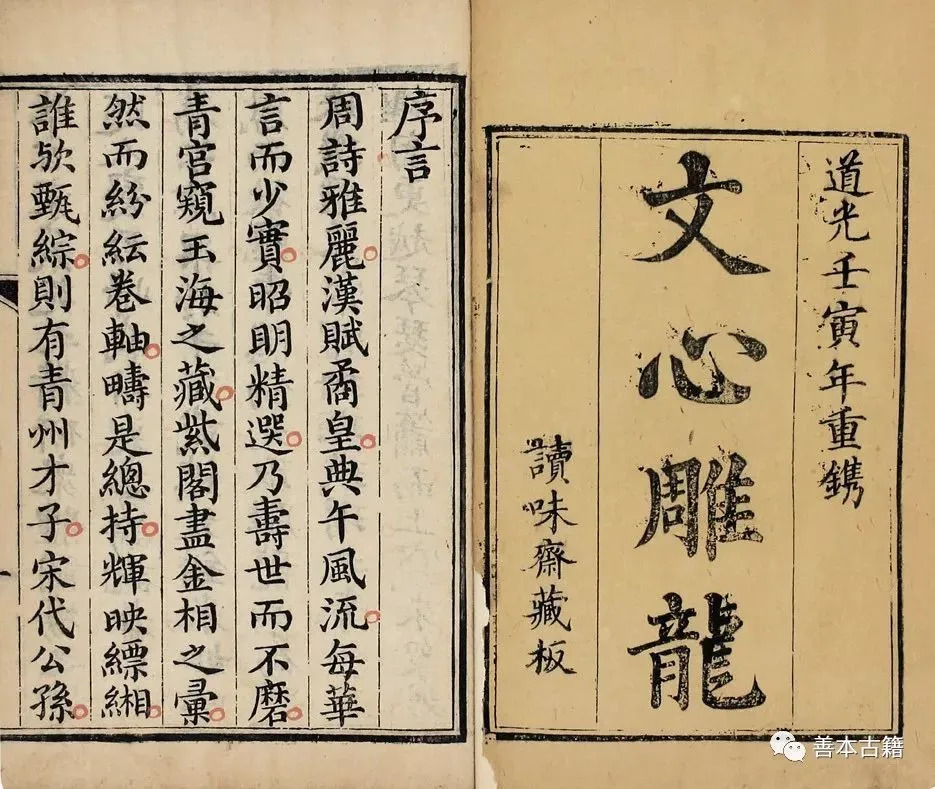 道光壬寅年重鐫
文心雕龍
讀味齋藏板
序言
周詩雅麗漢賦矞皇典午風流每華
言而少實昭明精選乃壽世而不磨
青宮窺玉海之藏紫閣盡金相之彙
然而紛紜卷軸疇是總持輝映縹緗
誰歟甄綜則有青州才子宋代公孫
善本古籍